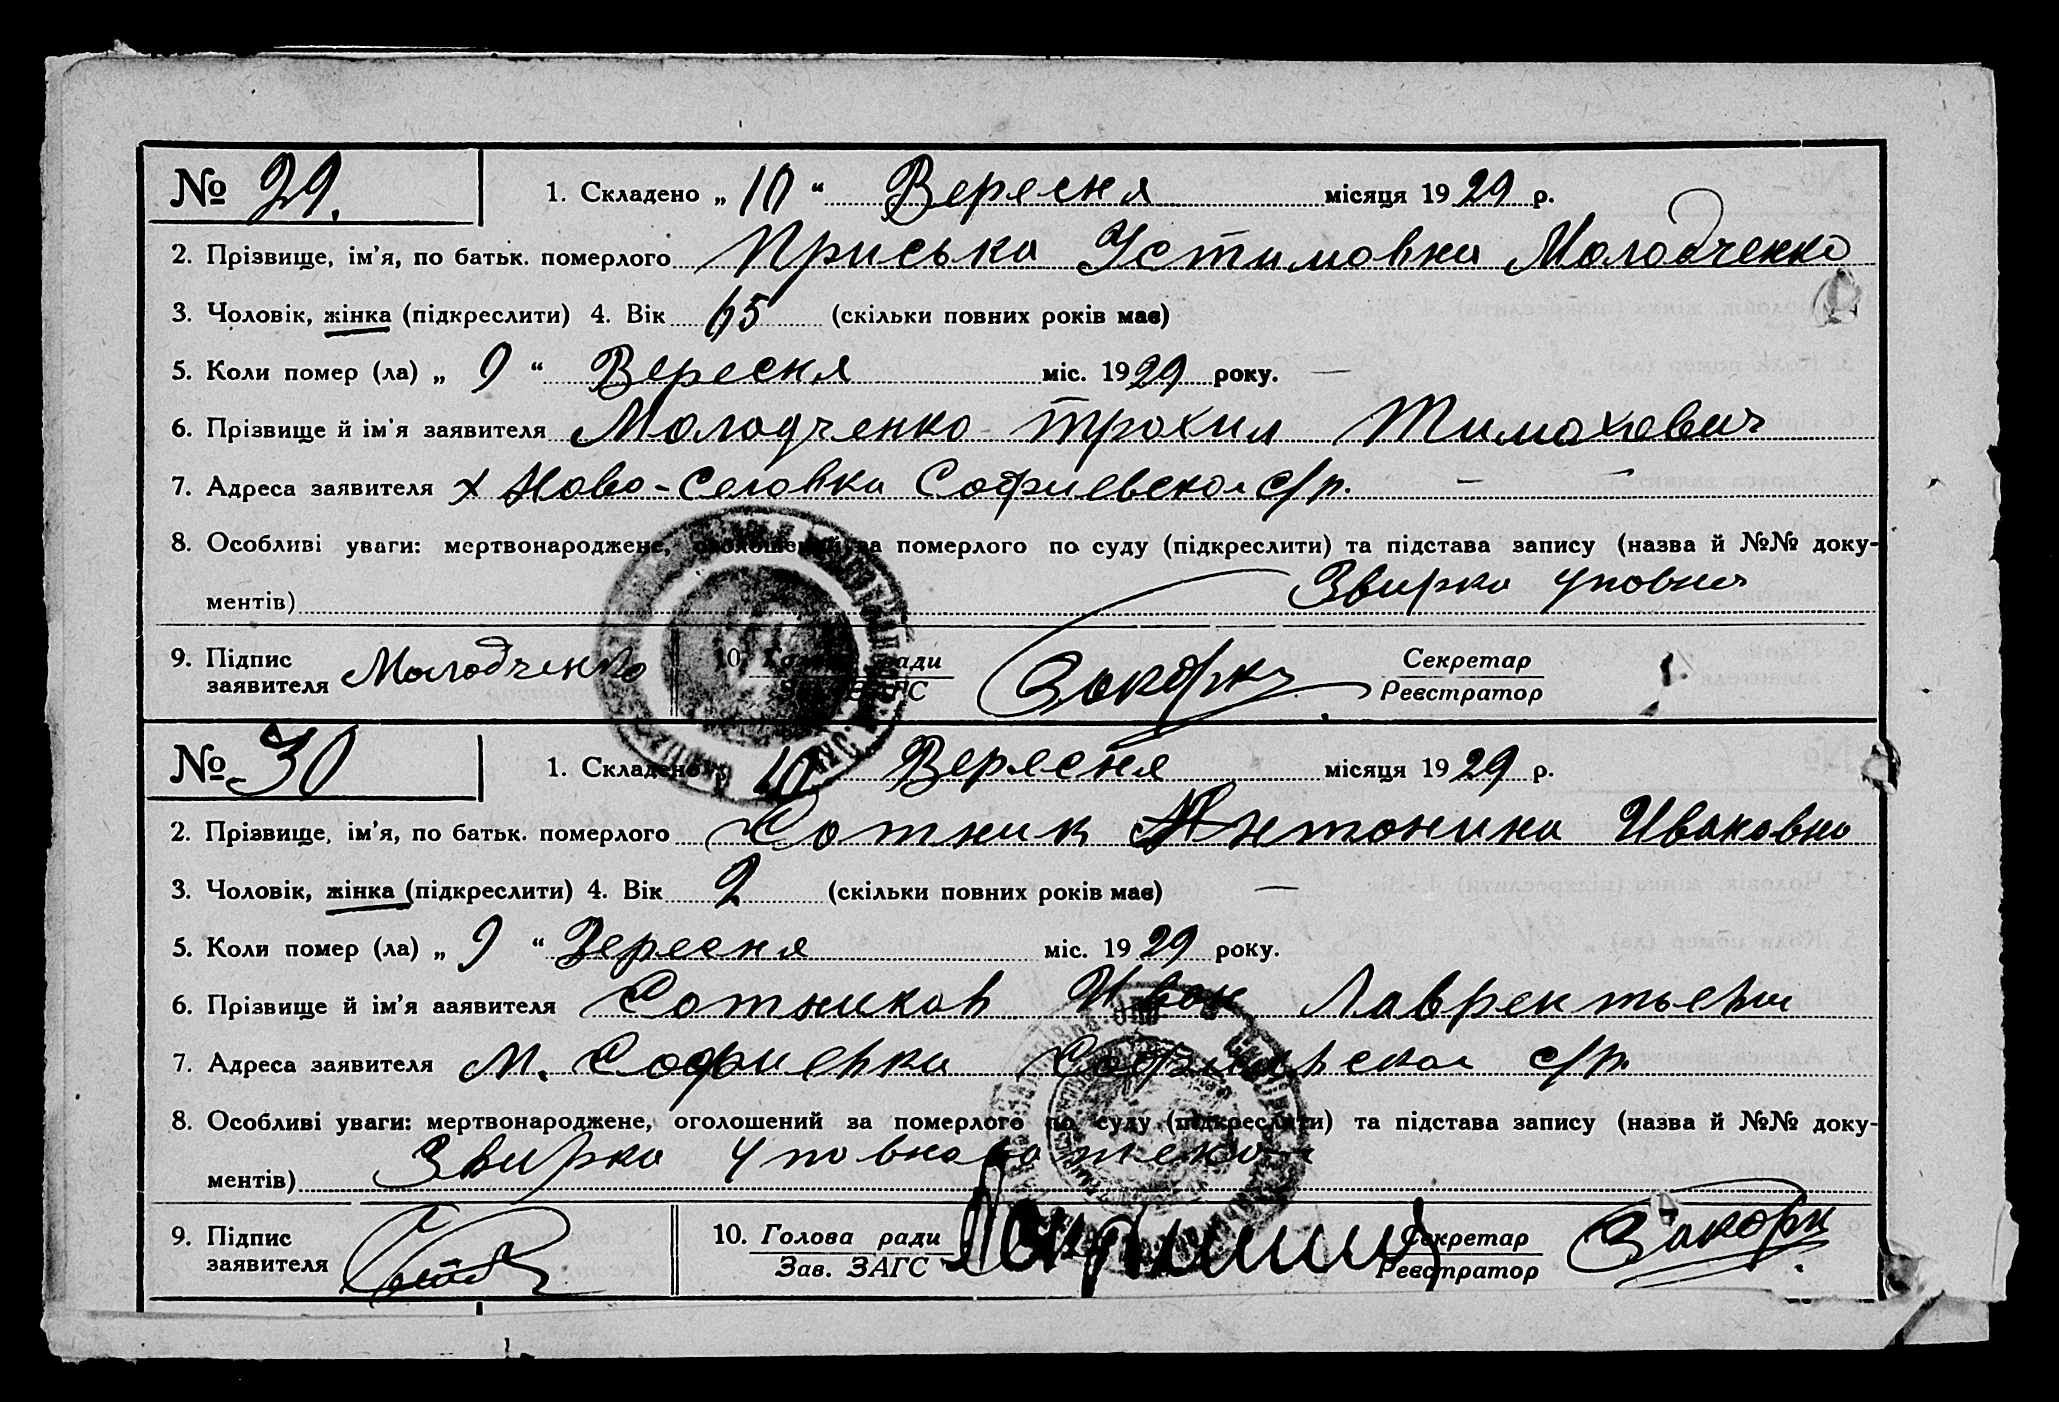 № 29. 1. Складено „ 10 “ Вересня місяця 1929 р.
2. Прізвище, ім'я, по батьк. померлого Приська Устимовна Молодченко
3. Чоловік, жінка (підкреслити) 4. Вік 65 (скільки повних років має)
5. Коли помер (ла) „ 9 “ Вересня міс. 1929 року. —
6. Прізвище й ім'я заявителя Молодченко Трохим
7. Адреса заявителя х Ново-Селовка Софиевской с/р. —
8. Особливі уваги: мертвонароджене, оголошений за померлого по суду (підкреслити) та підстава запису (назва й №№ доку-
ментів) Звирка
9. Підпис заявителя Молодченко 10. Голова ради Зав. ЗАГС Секретар Реєстратор
№ 30 1. Складено 10 Вересня місяця 1929 р.
2. Прізвище, ім'я, по батьк. померлого Сотник Антонина Ивановна
3. Чоловік, жінка (підкреслити) 4. Вік 2 (скільки повних років має) —
5. Коли помер (ла) „ 9 “ Вересня міс. 1929 року.
6. Прізвище й ім'я ааявителя Сотников Иван Лаврентьевич
7. Адреса заявителя м. Софиевка Софиевской с/р.
8. Особливі уваги: мертвонароджене, оголошений за померлого по суду (підкреслити) та підстава запису (назва й №№ доку-
ментів) Звирка
9. Підпис заявителя 10. Голова ради Зав. ЗАГС Секретар Реєстратор